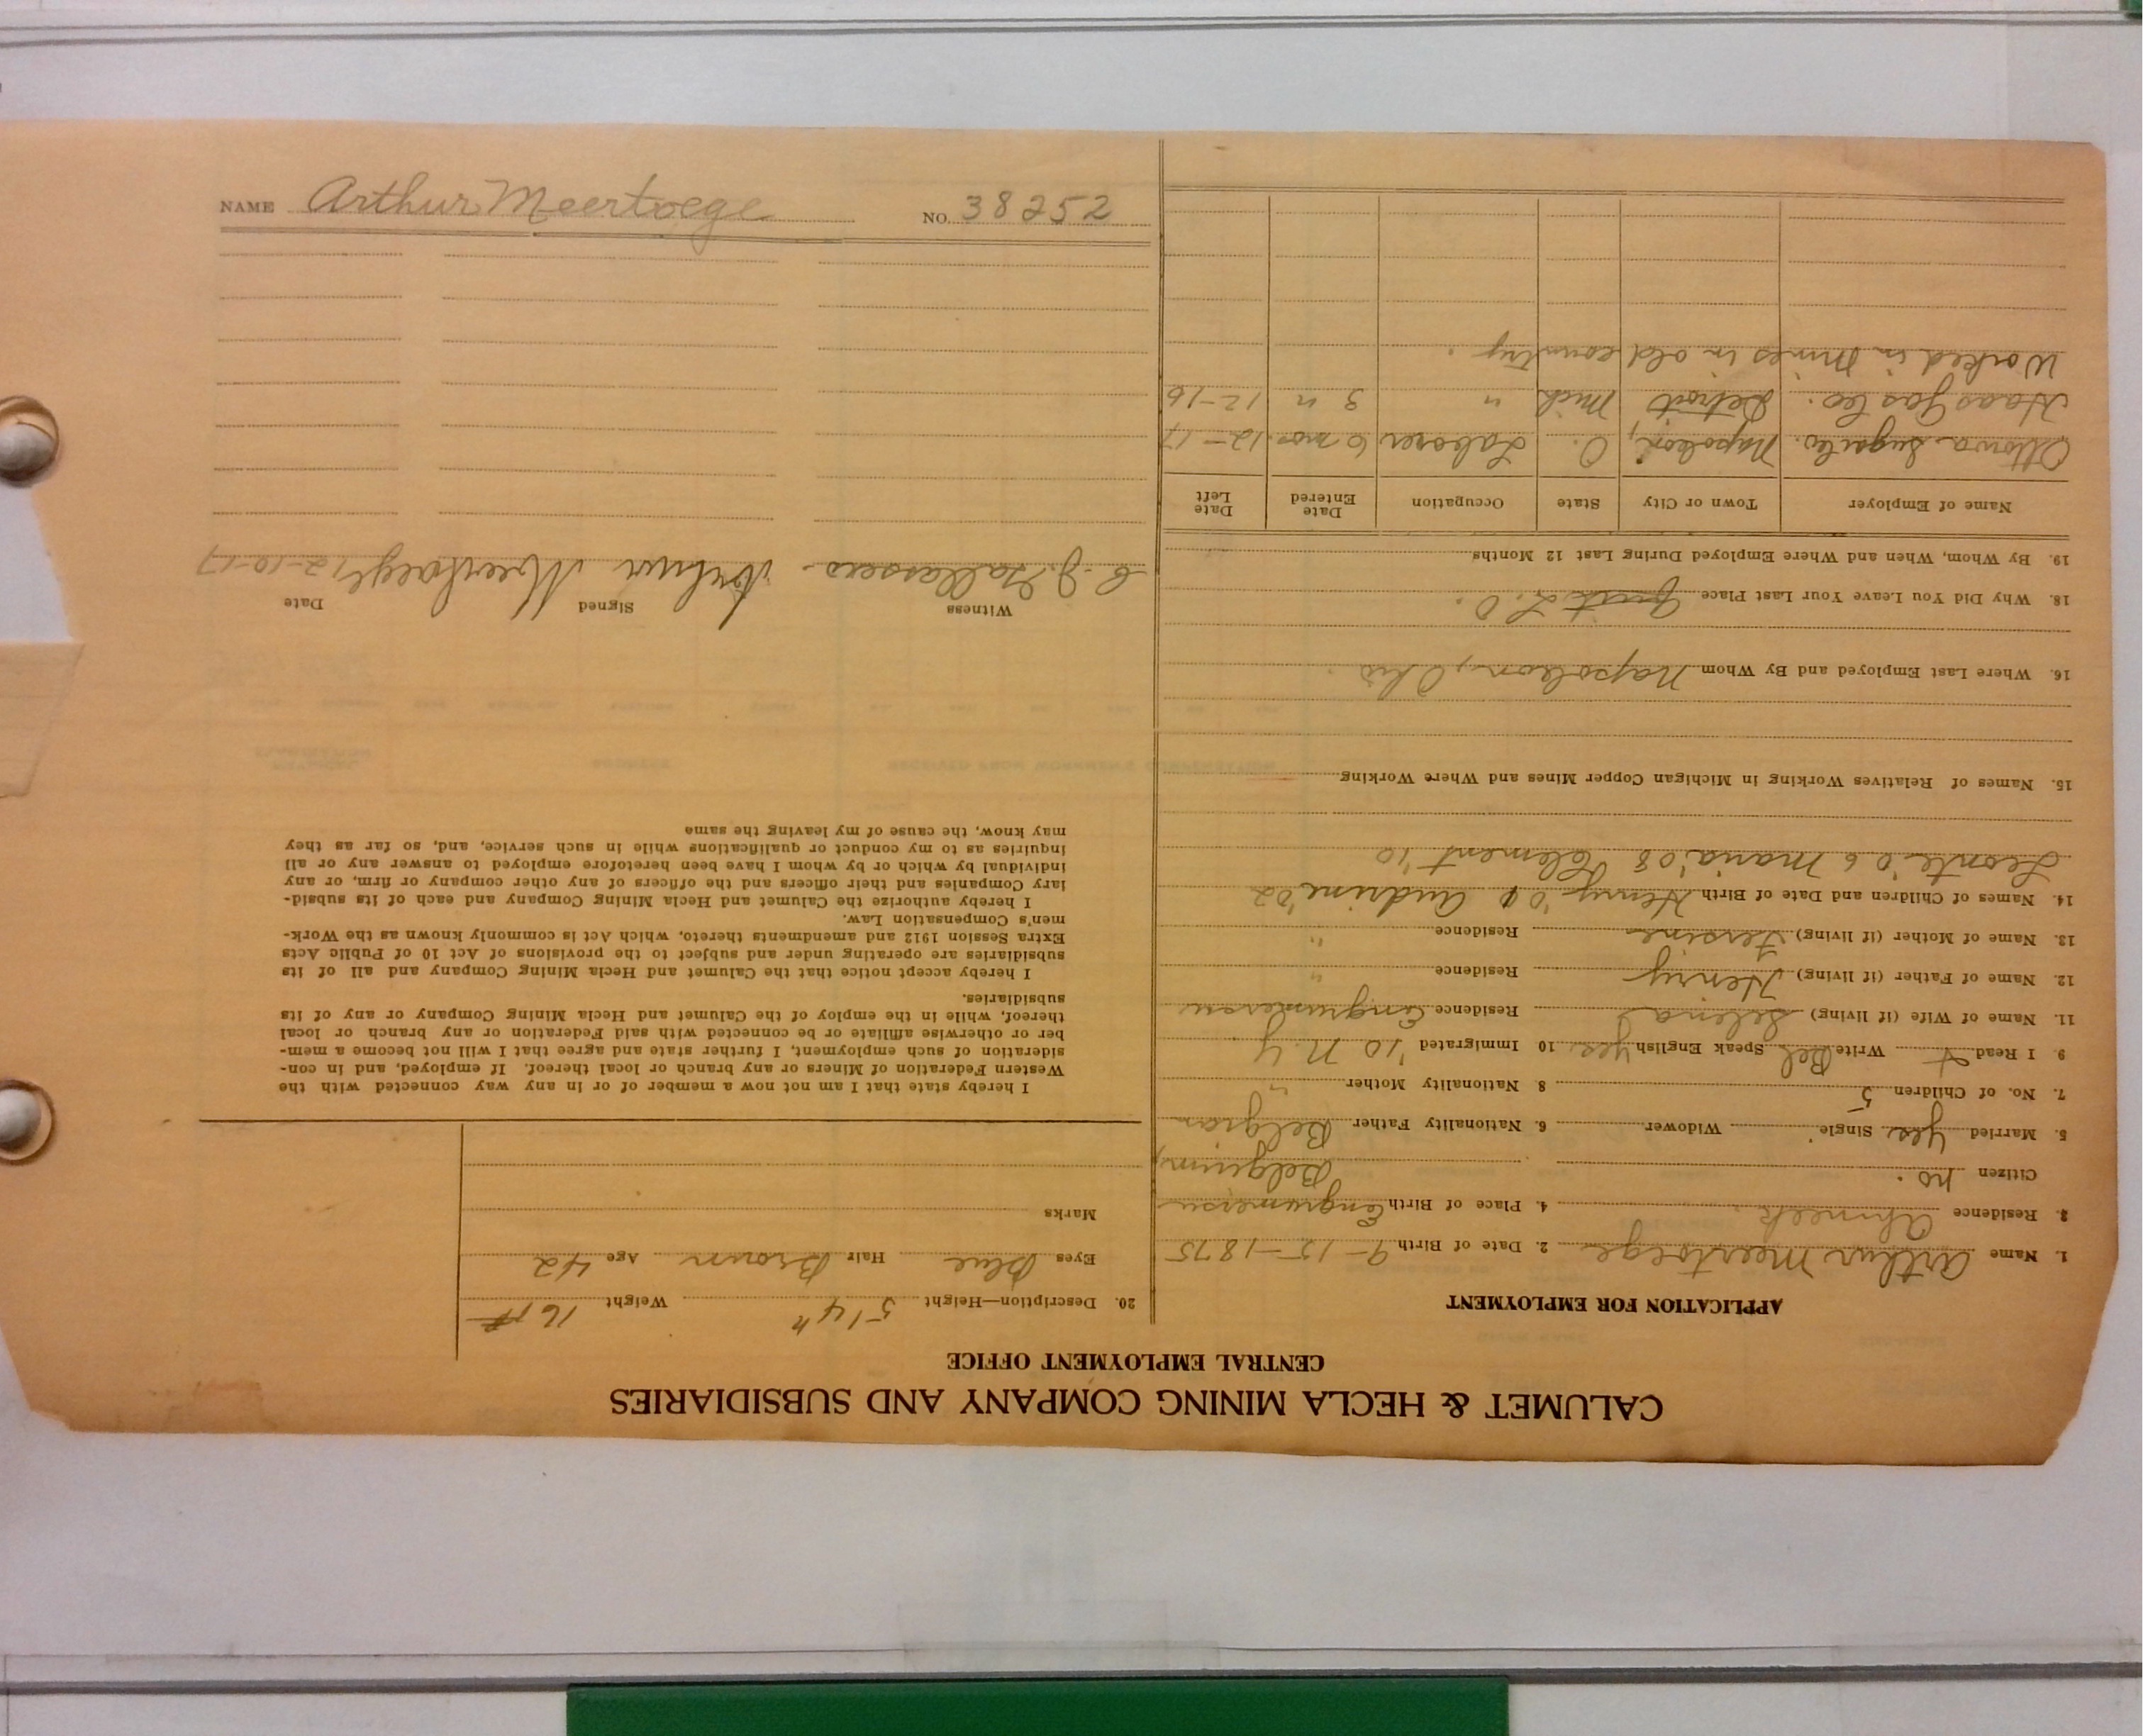 CALUMET & HECLA MINING COMPANY AND SUBSIDIARIES
CENTRAL EMPLOYMENT OFFICE
APPLICATION FOR EMPLOYMENT
1. Name Arthur Meertoege 2. Date of Birth 9-15-1875
3. Residence Ahmeek. 4. Place of Birth
Citizen no. Belgium,
5. Married yes. Single Widower 6. Nationality Father Belgian
7. No. of Children 5 8 Nationality Mother "
9. I Read + Write Bel Speak English yes. 10 Immigrated '10 N.Y
11. Name of Wife (if living) Selena Residence
12. Name of Father (if living) Henry Residence "
13. Name of Mother (if living) Residence "
14. Names of Children and Date of Birth Henry '01 Andrine '02
Leonte '06 Maria '08 Clement '10
15. Names of Relatives Working in Michigan Copper Mines and Where Working
16. Where Last Employed and By Whom Napoleon, Ohio.
18. Why Did You Leave Your Last Place L.O.
19. By Whom, When and Where Employed During Last 12 Months
Name of Employer Town or City State Occupation Date Entered Date Left
Ottowa Sugar Co. Napoleon, O. Laborer 6 mos. 12-17
Haas Gas Co. Detroit Mich " 3 " 12-16
Worked in Mines in old country.
20. Description—Height 5'4" Weight
Eyes Blue Hair Brown Age 42
Marks
I hereby state that I am not now a member of or in any way connected with the
Western Federation of Miners or any branch or local thereof. If employed, and in con-
sideration of such employment, I further state and agree that I will not become a mem-
ber or otherwise affiliate or be connected with said Federation or any branch or local
thereof, while in the employ of the Calumet and Hecla Mining Company or any of its
subsidiaries.
I hereby accept notice that the Calumet and Hecla Mining Company and all of its
subsidiaries are operating under and subject to the provisions of Act 10 of Public Acts
Extra Session 1912 and amendments thereto, which Act is commonly known as the Work-
men's Compensation Law.
I hereby authorize the Calumet and Hecla Mining Company and each of its subsid-
iary Companies and their officers and the officers of any other company or firm, or any
individual by which or by whom I have been heretofore employed to answer any or all
inquiries as to my conduct or qualifications while in such service, and, so far as they
may know, the cause of my leaving the same
Witness Signed Date
Arthur Meertoege 12-10-17
NAME Arthur Meertoege NO. 38252